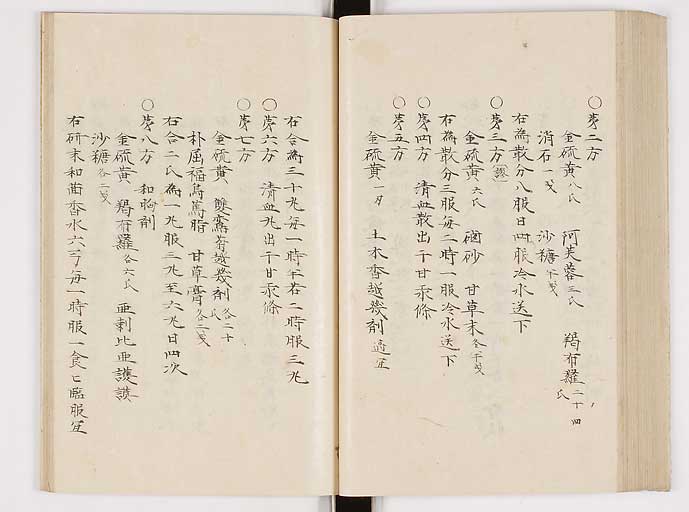 〇第二方
金硫黄八氏 阿芙蓉三氏 羯布羅二十四氏
消石一戔 沙糖半戔
右為散分八服日四服冷水送下
〇第三方
金硫黄六氏 硇砂 甘草末各半戔
右為散分三服每二時一服冷水送下
〇第四方 清血散出于甘汞條
〇第五方
金硫黄一 土木香越幾剤適宜
右合為三十丸每一時半若二時服三丸
〇第六方 清血丸出于甘汞條
〇第七方
金硫黄 雙鸞菊越幾剤各二十氏
朴屈福烏篤脂 甘草膏各二戔
右合二氏為一丸服三丸至六丸日四次
〇第八方 和胸剤
金硫黄 羯布羅各六氏 亜剌比亜護謨
沙糖各二戔
右研末和茴香水六弓每一時服一食匕臨服宜